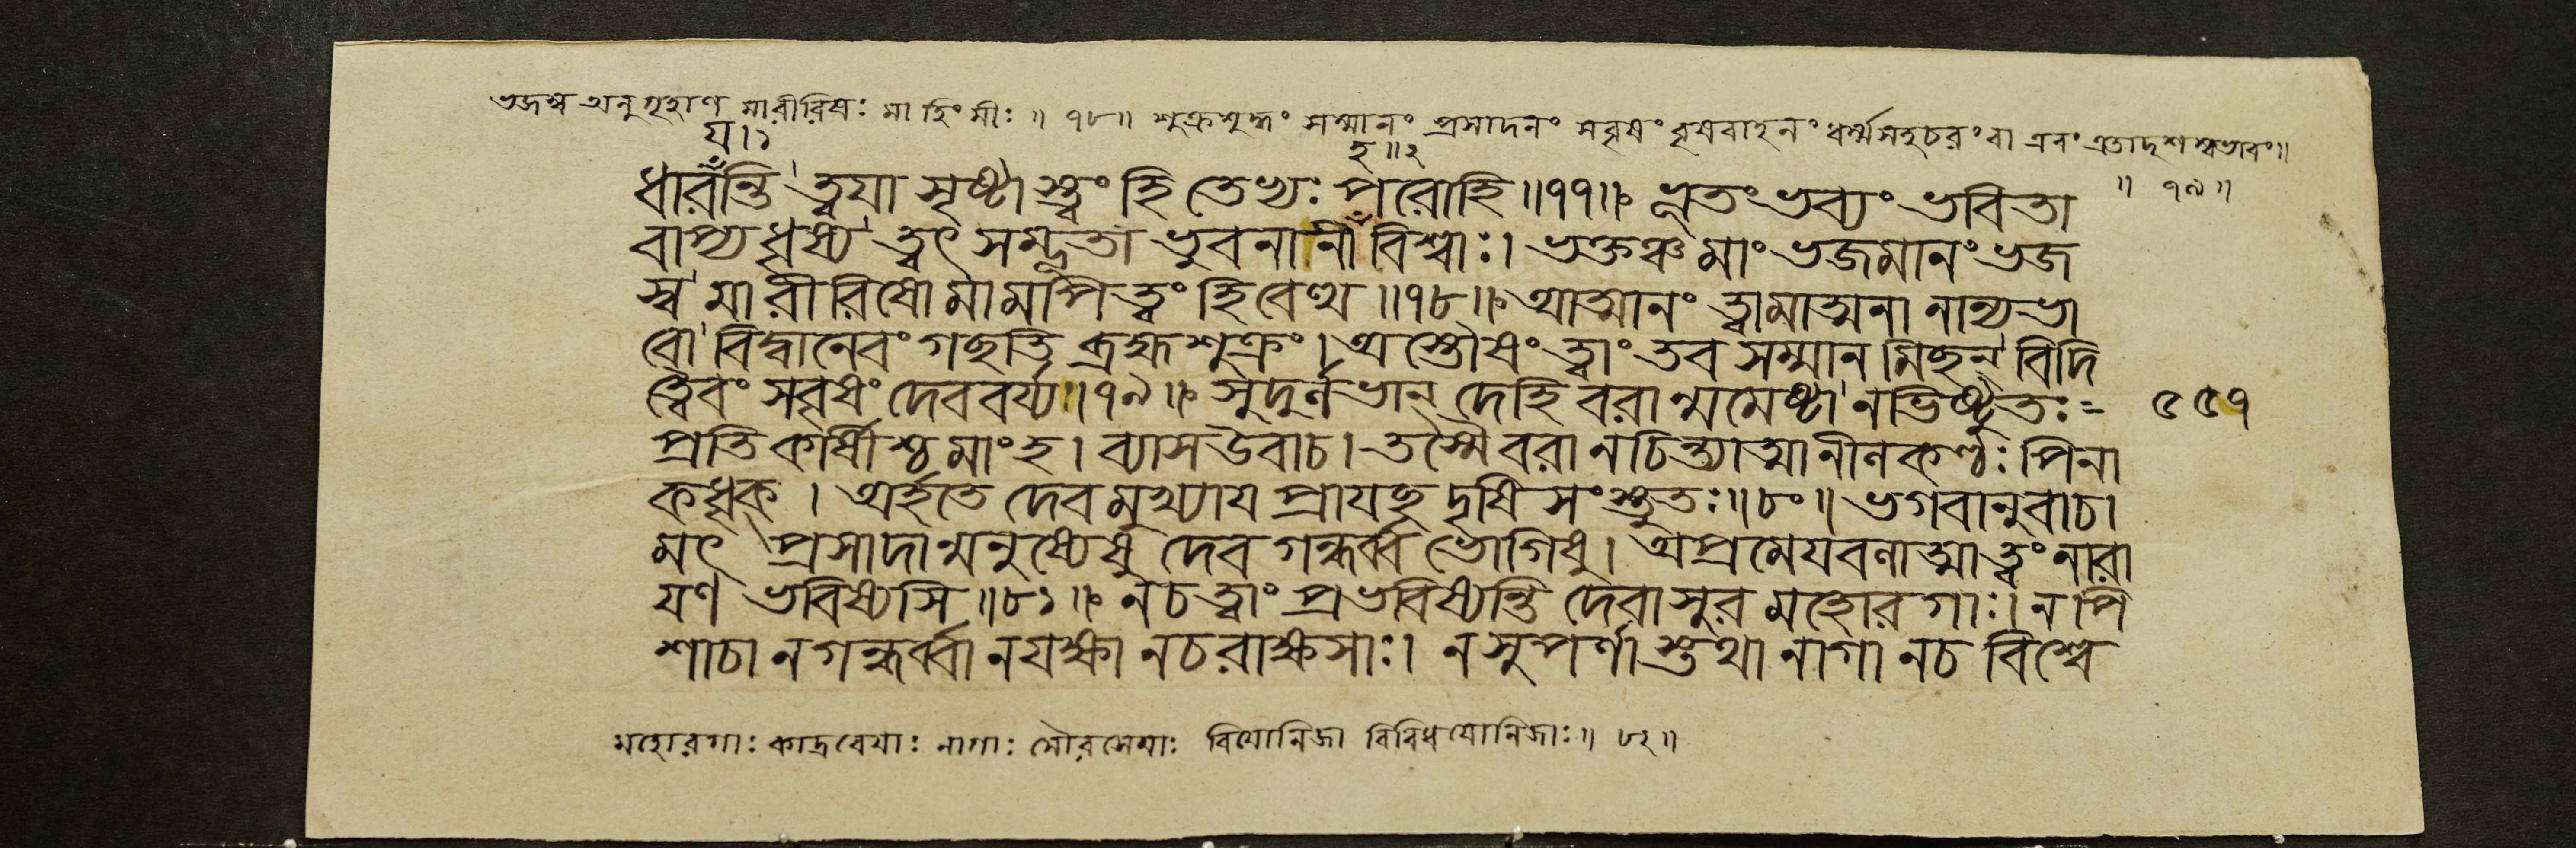 ভজস্ব অনুগৃহাণ মারীরিষঃ মা হিংসীঃ ॥ ৭৮॥ শুক্রশুদ্ধং সম্মানং প্রসাদনং সবৃষং বৃষবাহনং ধর্ম্মসহচরং বা এবং এতাদৃশস্বভাবং॥
॥ ৭৯॥
য।১
হ॥২
ধারঁন্তি ত্বযা সৃষ্টাস্ত্বং হি তেভ্যঃ পঁরোহি॥৭৭॥ ভূতং ভব্যং ভবিতা
বাপ্যধৃষ্যং ত্বৎ সম্ভূতা ভুবনানীঁ বিশ্বাঃ। ভক্তঞ্চ মাং ভজমানং ভজ
স্ব মারীরিষো মামপি ত্বং হি বেত্থ॥৭৮॥ আত্মানং ত্বামাত্মনা নান্যভা
বো বিদ্বানেবং গচ্ছতি ব্রহ্মশুক্রং। অস্তৌষং ত্বাং তব সম্মানমিচ্ছন্ বিদি
ত্বৈবং সবৃষং দেববর্য্য॥৭৯॥ সুদুর্লভান্ দেহি বরান্মমেষ্টানভিষ্টুতঃ=
৫৫৭
প্রতিকার্ষীশ্চ মাংহ। ব্যাস উবাচ। তস্মৈ বরানচিন্ত্যাত্মা নীলকণ্ঠঃ পিনা
কধৃক্। অর্হতে দেবমুখ্যায প্রাযচ্ছদৃষিসংস্তুতঃ॥৮০॥ ভগবানুবাচ।
মৎ প্রসাদান্মনুষ্যেষু দেবগন্ধর্ব্ব ভোগিষু। অপ্রমেযবলাত্মা ত্বং নারা
যণ ভবিষ্যসি॥৮১॥ ন চ ত্বাং প্রভবিষ্যন্তি দেবাসুরমহোরগাঃ। ন পি
শাচা ন গন্ধর্ব্বা ন যক্ষা ন চ রাক্ষসাঃ। ন সুপর্ণাস্তথা নাগা ন চ বিশ্বে
মহোরগাঃ কাদ্রবেযাঃ নাগাঃ সৌরসেযাঃ বিযোনিজা বিবিধযোনিজাঃ॥ ৮২॥